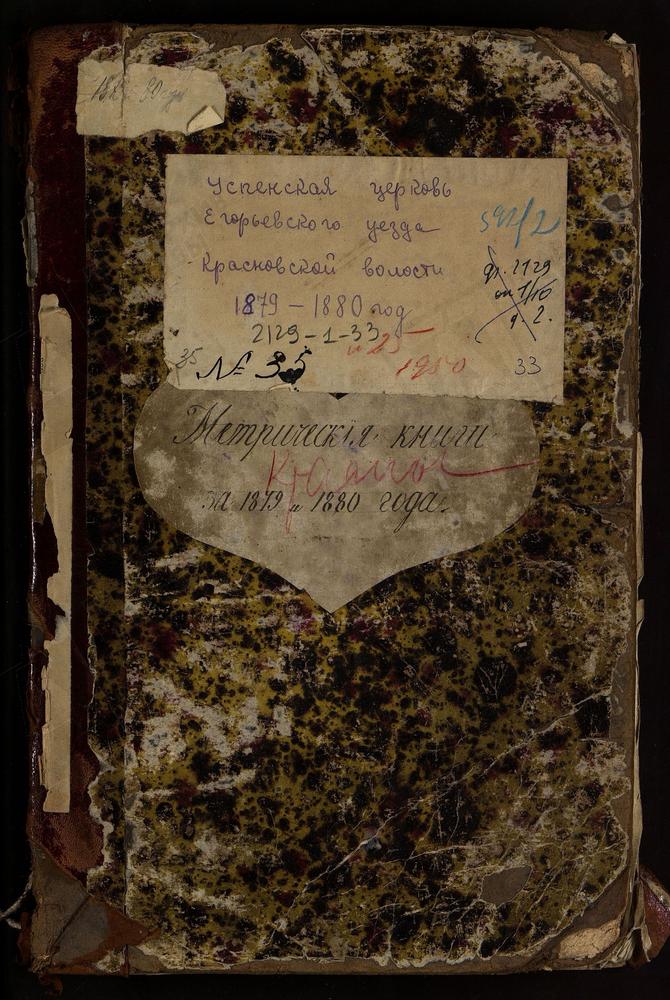 80
Успенская церковь
Егорьевского уезда
592/2
Красновской волости
ф. 2129
оп 1/10
1879 – 1880 год
2.
2129-1-33
25
35 № 35
1950
33
Метрическія книги
за 1879 и 1880 года.